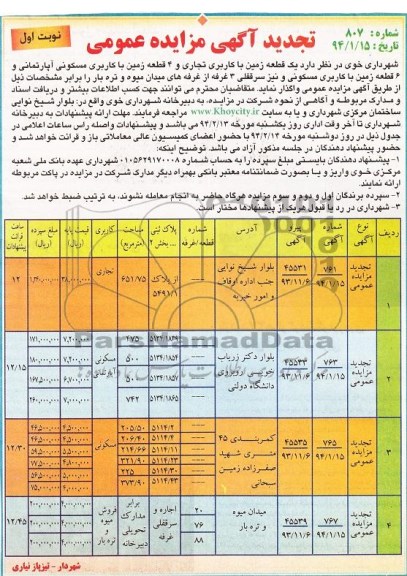 نوبت اول
تجدید آگهی مزایده عمومی
شماره: ۸۰۷
تاریخ: ۹۴/۱/۱۵
شهرداری خوی در نظر دارد یک قطعه زمین با کاربری تجاری و ۴ قطعه زمین با کاربری مسکونی آپارتمانی و
۶ قطعه زمین با کاربری مسکونی و نیز سرقفلی ۳ غرفه از غرفه های میدان میوه و تره بار را برابر مشخصات ذیل
از طریق آگهی مزایده عمومی واگذار نماید. متقاضیان محترم می توانند جهت کسب اطلاعات بیشتر و دریافت اسناد
و مدارک مربوطه و آگاهی از نحوه شرکت در مزایده، به دبیرخانه شهرداری خوی واقع در: بلوار شیخ نوایی
ساختمان مرکزی شهرداری و یا به سایت www.Khoycity.ir مراجعه فرمایند. مهلت ارائه پیشنهادات به دبیرخانه
شهرداری تا آخر وقت اداری روز یکشنبه مورخه ۹۴/۲/۱۳ می باشد و پیشنهادات واصله راس ساعات اعلامی در
جدول ذیل در روز دوشنبه مورخه ۹۴/۲/۱۴ با حضور اعضای کمیسیون عالی معاملاتی باز و قرائت خواهد شد و
حضور پیشنهاد دهندگان در جلسه مذکور آزاد می باشد. توضیح اینکه:
۱- پیشنهاد دهندگان بایستی مبلغ سپرده را به حساب شماره ۰۱۰۵۶۲۹۱۷۰۰۰۸ شهرداری عهده بانک ملی شعبه
مرکزی خوی واریز و یا بصورت ضمانتنامه معتبر بانکی بهمراه دیگر مدارک شرکت در مزایده در پاکت مربوطه
ارائه نمایند.
۲- سپرده برندگان اول و دوم و سوم مزایده هرگاه حاضر به انجام معامله نشوند، به ترتیب ضبط خواهد شد.
۳- شهرداری در رد یا قبول هریک از پیشنهادها مختار است
ردیف نوع آگهی شماره آگهی آدرس شماره قطعه/غرفه پلاک ثبتی بخش ۲ مساحت (مترمربع) کاربری قیمت پایه (ریال) مبلغ سپرده (ریال)
۱ تجدید مزایده عمومی ۷۶۱ ۹۴/۱/۱۵ ۴۵۵۳۱ ۹۳/۱۱/۶ بلوار شیخ نوایی جنب اداره اوقاف و امور خیریه ---- از پلاک ۵۴۹۱/۱ ۶۵۱/۷۵ تجاری ۱۲
۲ تجدید مزایده عمومی ۷۶۳ ۹۴/۱/۱۵ ۹۳/۱۱/۶ بلوار دکتر زریاب خویی روبروی دانشگاه دولتی مسکونی آپارتمانی ۱۲/۱۵
۵۱۳۴/۱۸۴۹ ۴۷۵ ۷,۲۰۰,۰۰۰ ۱۷۱,۰۰۰,۰۰۰
۵۱۳۴/۱۸۵۴ ۵۰۰ ۷,۲۰۰,۰۰۰ ۱۸۰,۰۰۰,۰۰۰
۵۱۳۴/۱۸۵۷ ۵۰۰ ۶,۷۰۰,۰۰۰ ۱۶۷,۵۰۰,۰۰۰
۵۱۳۴/۱۸۶۵ ۷۴۲
۳ تجدید مزایده عمومی ۷۶۵ ۹۴/۱/۱۵ ۴۵۵۳۵ ۹۳/۱۱/۶ کمربندی ۴۵ متری شهید صفرزاده زمین سبحانی مسکونی ۱۲/۳۰
۵۱۱۴/۲ ۲۰۵/۵۰
۵۱۱۴/۴ ۲۰۶/۴۰
۵۱۱۴/۱۱ ۲۱۴/۶۶
۵۱۱۴/۲۳ ۳۲۱/۹۰
۵۱۱۴/۳۰ ۲۲۵
۵۱۱۴/۴۳ ۳۷۳/۹۰
۴ تجدید مزایده عمومی ۷۶۷ ۹۴/۱/۱۵ ۴۵۵۳۹ ۹۳/۱۱/۶ میدان میوه و تره بار ۲۰ ۷۶ ۸۸ اجاره و سرقفلی غرفه برابر مدارک تحویلی دبیرخانه فروش میوه و تره بار ۱۲/۴۵
شهردار - تیزپاز نیاری
ParsNamadData